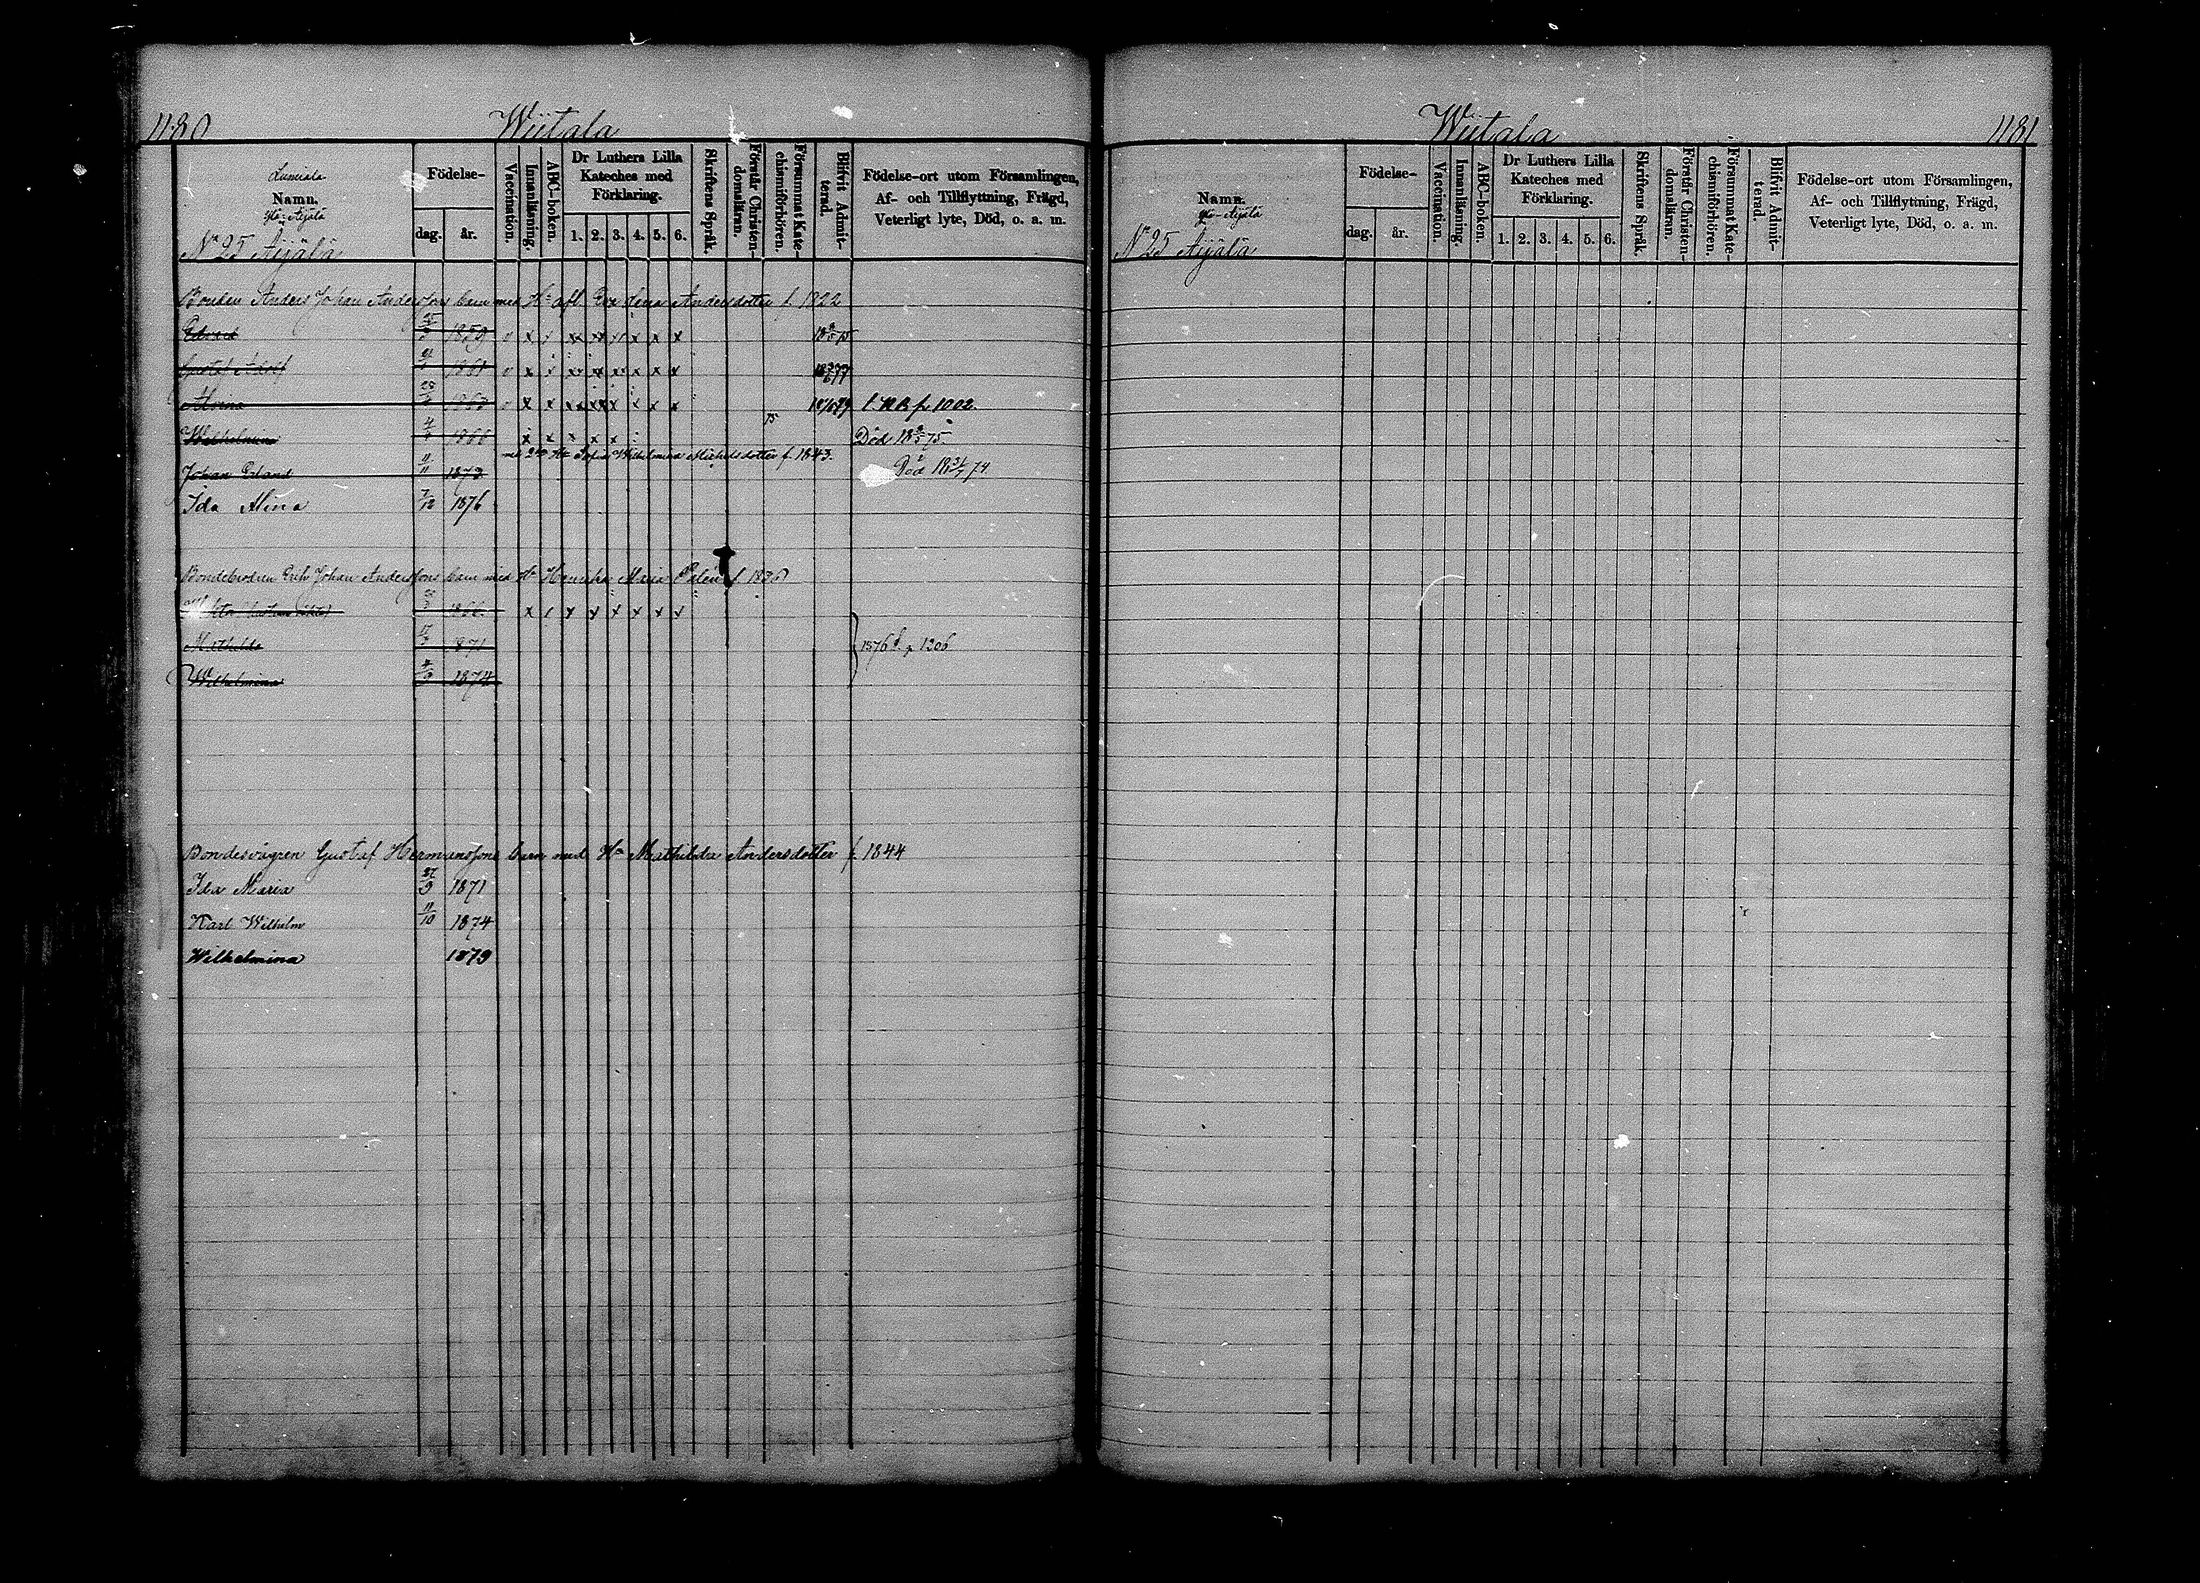 1180 Wiitala
Lumiala
Namn.
Yli-Äijälä
No 25 Äijälä
Födelse-
dag. år.
Vaccination.
Innanläsning.
ABC-boken.
Dr Luthers Lilla
Kateches med
Förklaring.
1. 2. 3. 4. 5. 6.
Skriftens Språk.
Förstår Christen-
domsläran.
Försummat Kate-
chismiförhören.
Blifvit Admit-
terad.
Födelse-ort utom Församlingen,
Af- och Tillflyttning, Frägd,
Veterligt lyte, Död, o. a. m.
Bonden Anders Johan Anderssons barn med Hu afl. Eva Lena Andersdotter f. 1822
Edvard 1859 v x x x x x
Gustaf Adolf 1861 v x x x x 77
Alvina 1863 v x x x x x x x x 79 l. N B p 1002.
Wilhelmina 1866 x x x x x 75 Död 18 75
med 2dra Hu Sofia Wilhelmina Michelsdotter f. 1843.
Johan Erland 11/11 1873 Död 18 74
Ida Alina 7/12 1876
Bondebrodren Erik Johan Anderssons barn med Hu Henrika Maria f 1836
1866 x x x x x x x x
Mathilda 1871 1876 p 1206
Wilhelmina 1874
Bondesvågren Gustaf Hermanssons barn med Hu Mathilda Andersdotter f. 1844
Ida Maria 27/9 1871
Karl Wilhelm 11/10 1874
Wilhelmina 1879
Wiitala 1181
Namn.
Yli-Äijälä
No 25 Äijälä
Födelse-
dag. år.
Vaccination.
Innanläsning.
ABC-boken.
Dr Luthers Lilla
Kateches med
Förklaring.
1. 2. 3. 4. 5. 6.
Skriftens Språk.
Förstår Christen-
domsläran.
Försummat Kate-
chismiförhören.
Blifvit Admit-
terad.
Födelse-ort utom Församlingen,
Af- och Tillflyttning, Frägd,
Veterligt lyte, Död, o. a. m.